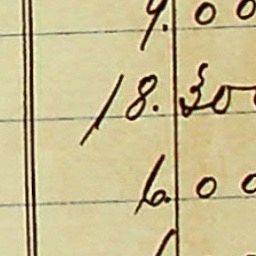 9.00
18.30
6.00